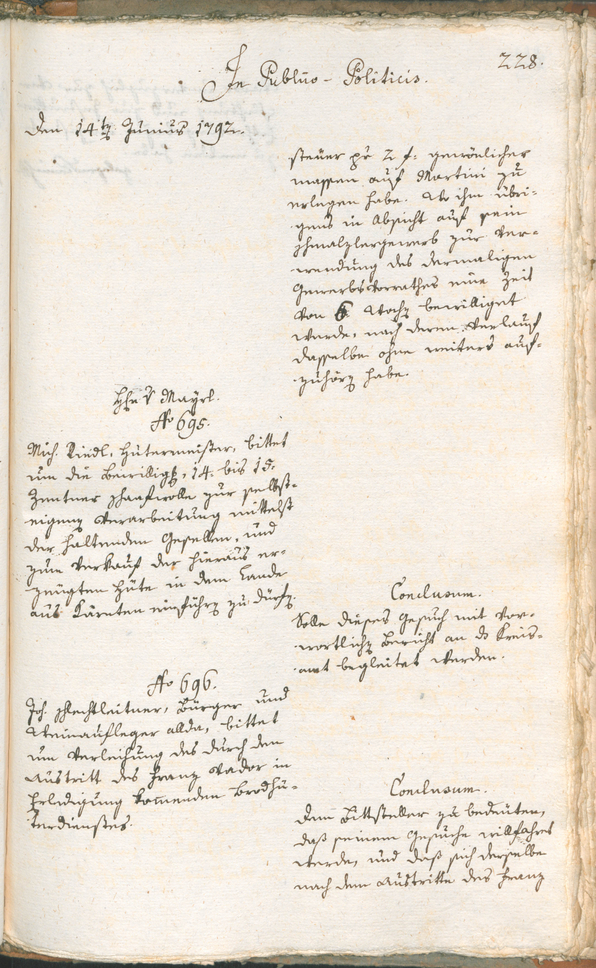 228.
In Publico-Politicis.
Den 14t Junius 1792.
steuer pr 2 f. gewönlicher
massen auf Martini zu
erlegen habe. Wo ihm übri-
gens in Absicht auf sein
schmalzlergewerb zur Ver-
wendung des dermaligen
Gewerbsvorrathes eine Zeit
von 6 Woch bewilliget
werde, nach deren Verlauf
dasselbe ohne weiters auf-
zuhörn habe.
H Mayrl.
No 695.
Mich. Riedl, Hutermeister, bittet
um die Bewillig, 14. bis 15.
Zentner schaafwolle zur selbst-
eignen Verarbeitung mittelst
der haltenden Gesellen, und
zum Verkauf der hieraus er-
zeugten Hüte in dem Lande
aus Kärnten einführn zu dürfn.
Conclusum.
Solle dieses Gesuch mit Vor-
wortlichn Bericht an ds Kreis-
amt begleitet werden.
No 696.
Joh. schlechtleitner, Bürger und
Weinaufleger allda, bittet
um Verleihung des durch den
Austritt des Franz Vador in
Erledigung komenden Brodhü-
terdienstes.
Conclusum.
Dem Bittsteller zu bedeuten,
daß seinem Gesuche willfahret
werde, und daß sich derselbe
nach dem Austritte des Franz